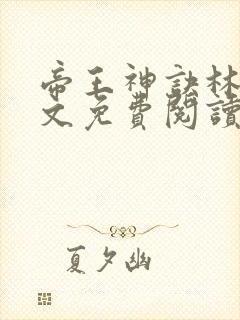 帝王神訣林
文免費閱讀
夏夕幽